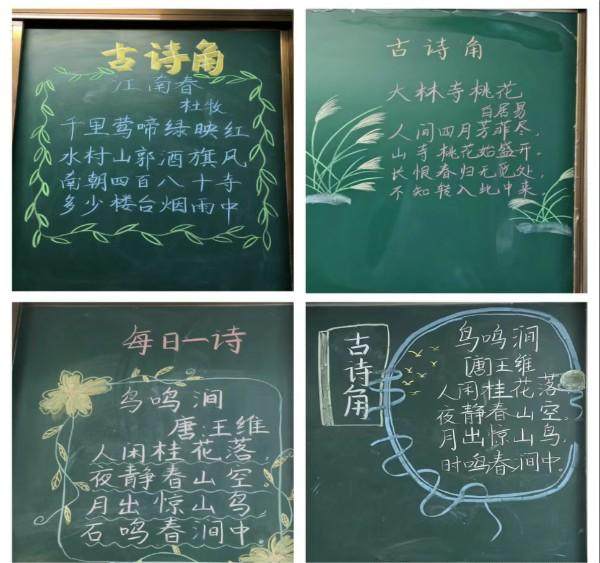 古诗角
江南春
杜牧
千里莺啼绿映红
水村山郭酒旗风
南朝四百八十寺
多少楼台烟雨中
古诗角
大林寺桃花
白居易
人间四月芳菲尽，
山寺桃花始盛开。
长恨春归无觅处，
不知转入此中来。
每日一诗
鸟鸣涧
唐:王维
人闲桂花落，
夜静春山空。
月出惊山鸟，
石鸣春涧中
古诗角
鸟鸣涧
唐王维
人闲桂花落
夜静春山空.
月出惊山鸟,
时鸣春涧中.